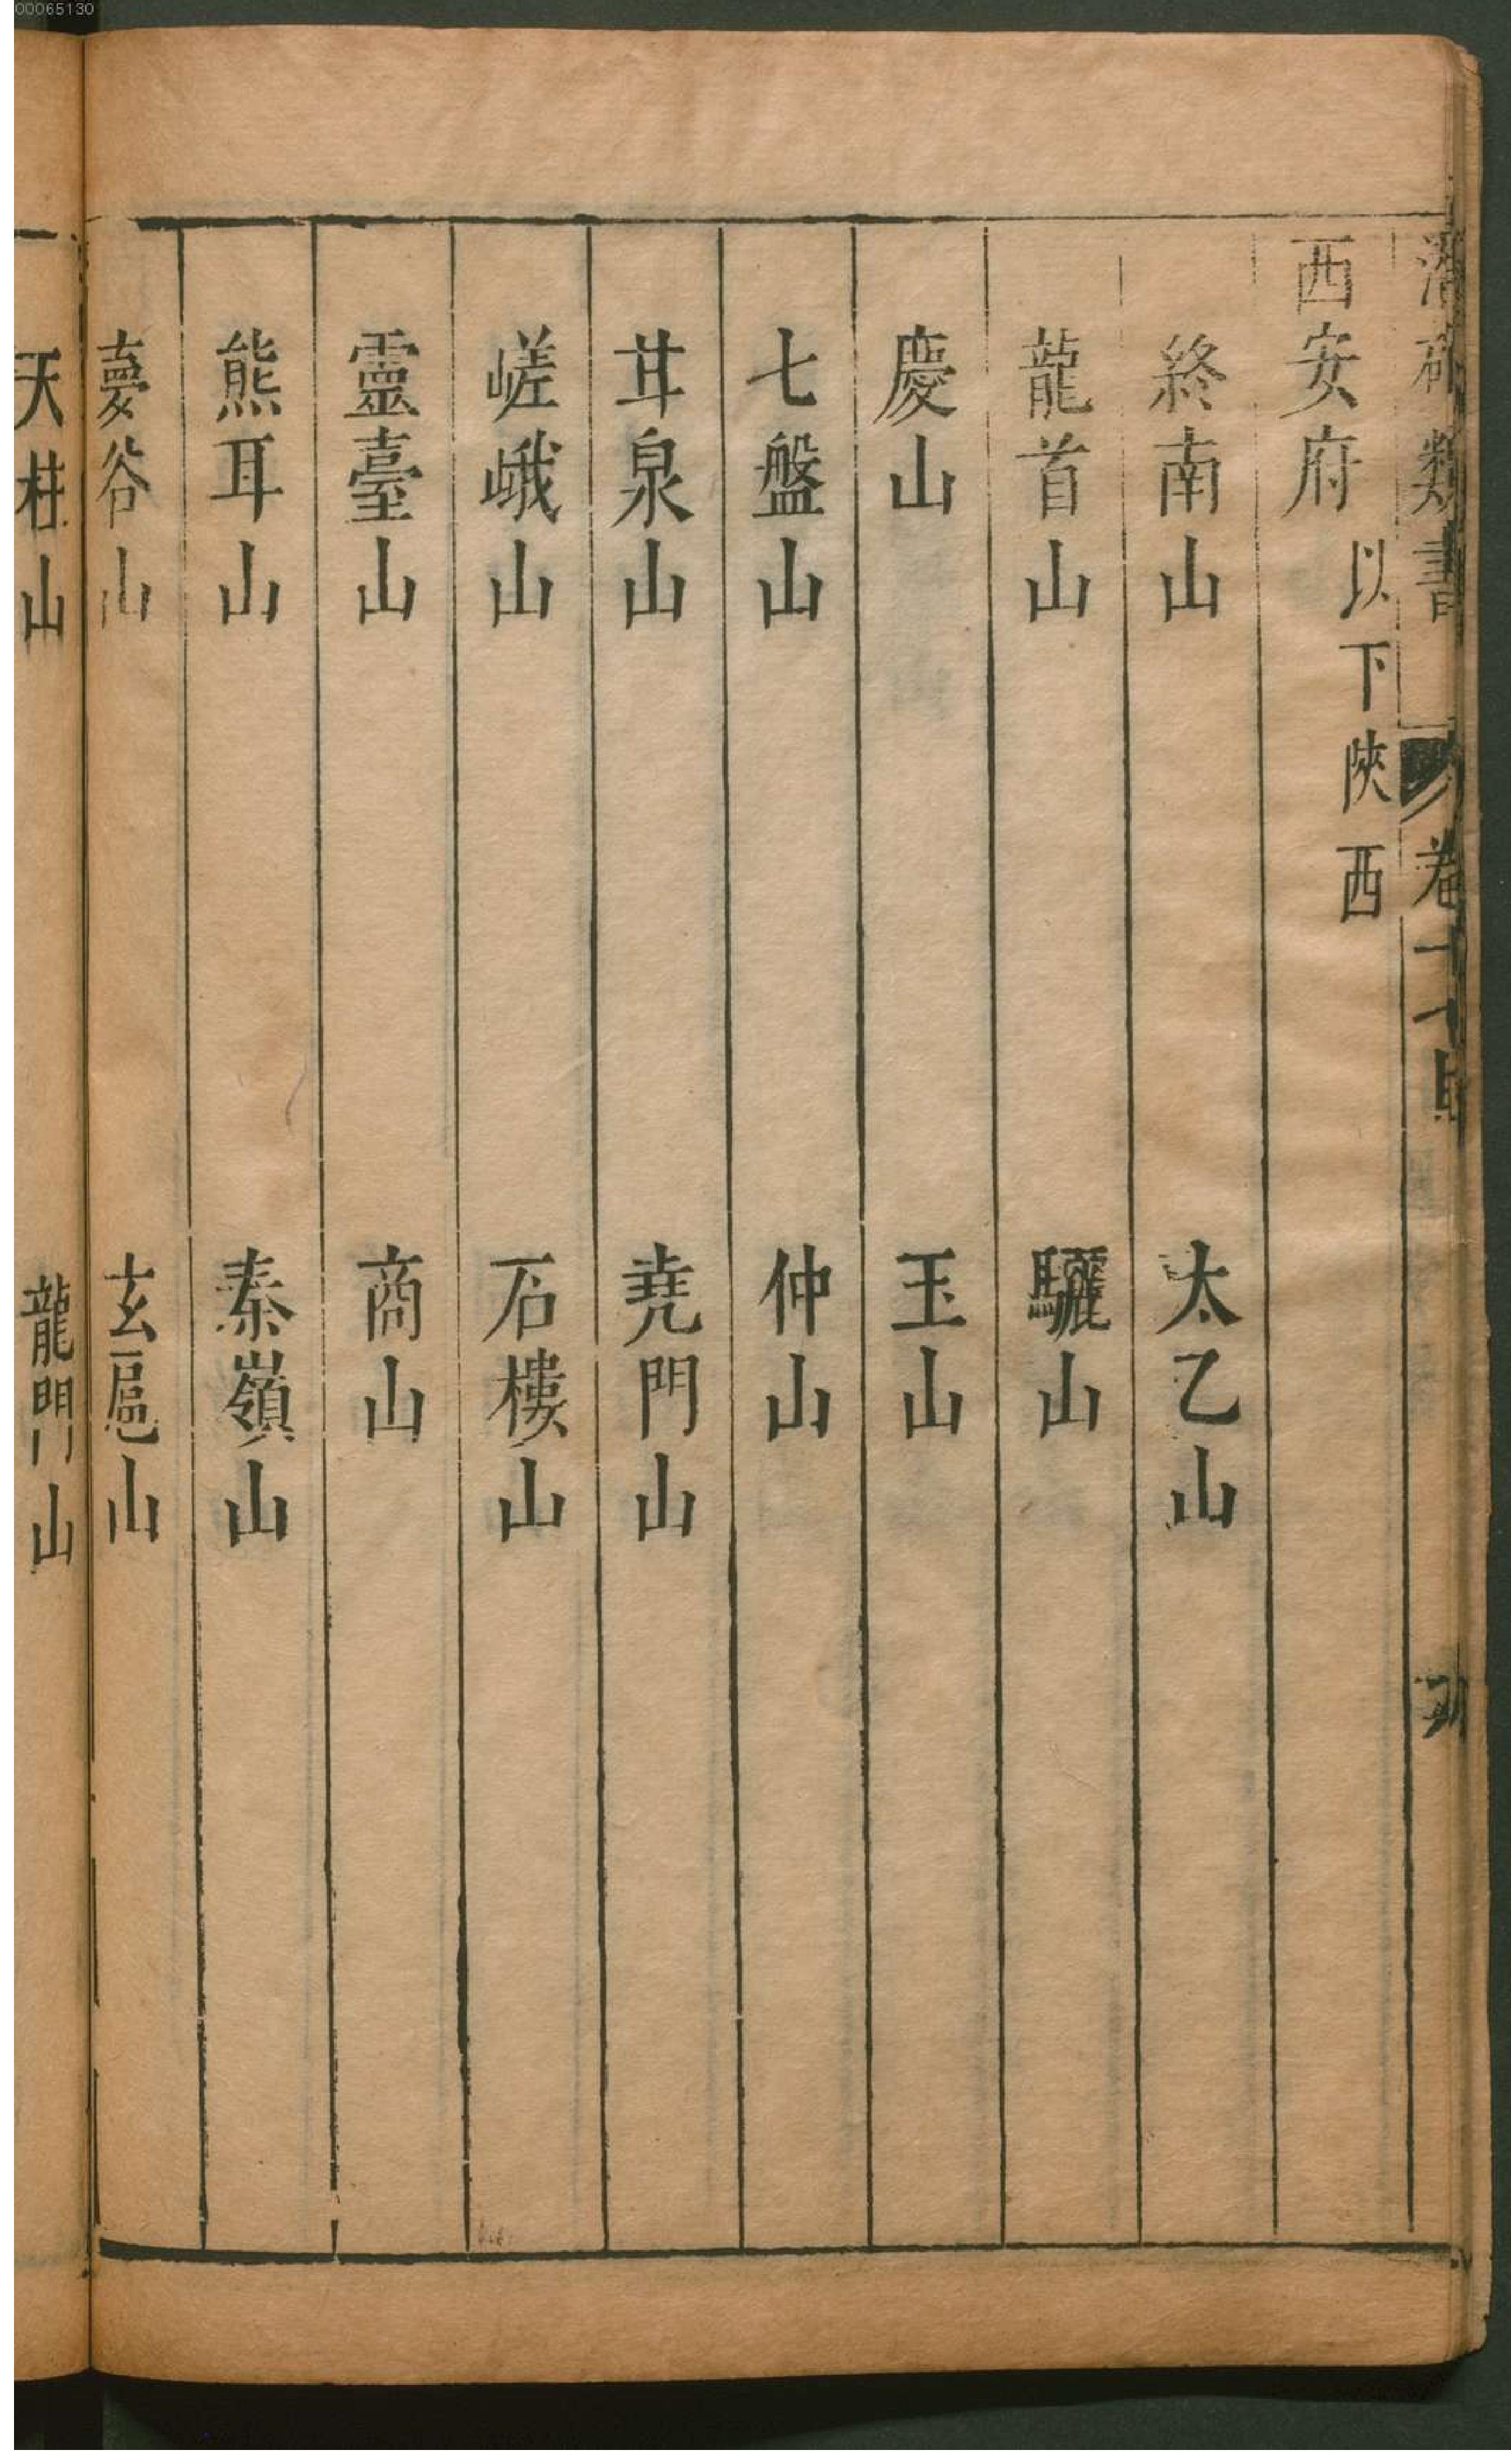 00065130
潛確類書 卷十七目 九
西安府 以下陝西
終南山 太乙山
龍首山 驪山
慶山 玉山
七盤山 仲山
甘泉山 堯門山
嵯峨山 石樓山
靈臺山 商山
熊耳山 秦嶺山
谷山 玄扈山
天柱山 龍門山